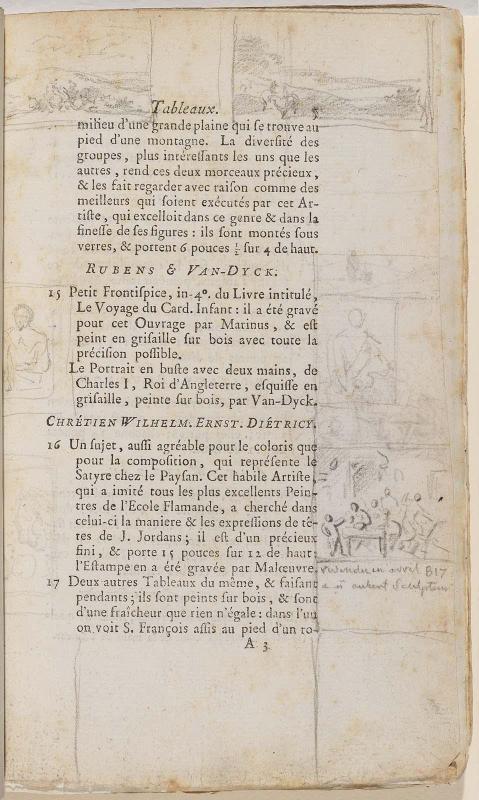 Tableaux. 5
milieu d'une grande plaine qui se trouve au
pied d'une montagne. La diversité des
groupes, plus intéressants les uns que les
autres, rend ces deux morceaux précieux,
& les fait regarder avec raison comme des
meilleurs qui soient exécutés par cet Ar-
tiste, qui excelloit dans ce genre & dans la
finesse de ses figures : ils sont montés sous
verres, & portent 6 pouces ½ sur 4 de haut.
RUBENS & VAN-DYCK.
15 Petit Frontispice, in-4°. du Livre intitulé,
Le Voyage du Card. Infant : il a été gravé
pour cet Ouvrage par Marinus, & est
peint en grisaille sur bois avec toute la
précision possible.
Le Portrait en buste avec deux mains, de
Charles I, Roi d'Angleterre, esquisse en
grisaille, peinte sur bois, par Van-Dyck.
CHRÉTIEN WILHELM. ERNST. DIÉTRICY.
16 Un sujet, aussi agréable pour le coloris que
pour la composition, qui représente le
Satyre chez le Paysan. Cet habile Artiste,
qui a imité tous les plus excellents Pein-
tres de l'Ecole Flamande, a cherché dans
celui-ci la maniere & les expressions de tê-
tes de J. Jordans ; il est d'un précieux
fini, & porte 15 pouces sur 12 de haut ;
l'Estampe en a été gravée par Malœuvre.
revendu en avril
17 Deux autres Tableaux du même, & faisant
pendants ; ils sont peints sur bois, & sont
d'une fraîcheur que rien n'égale : dans l'un
on voit S. François assis au pied d'un ro-
A 3